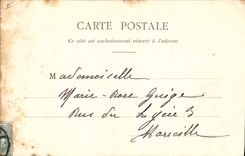 CARTE POSTALE
Ce côté est exclusivement réservé à l'adresse
Mademoiselle
Marie-Rose Guige
Rue du Lycée 3
Marseille